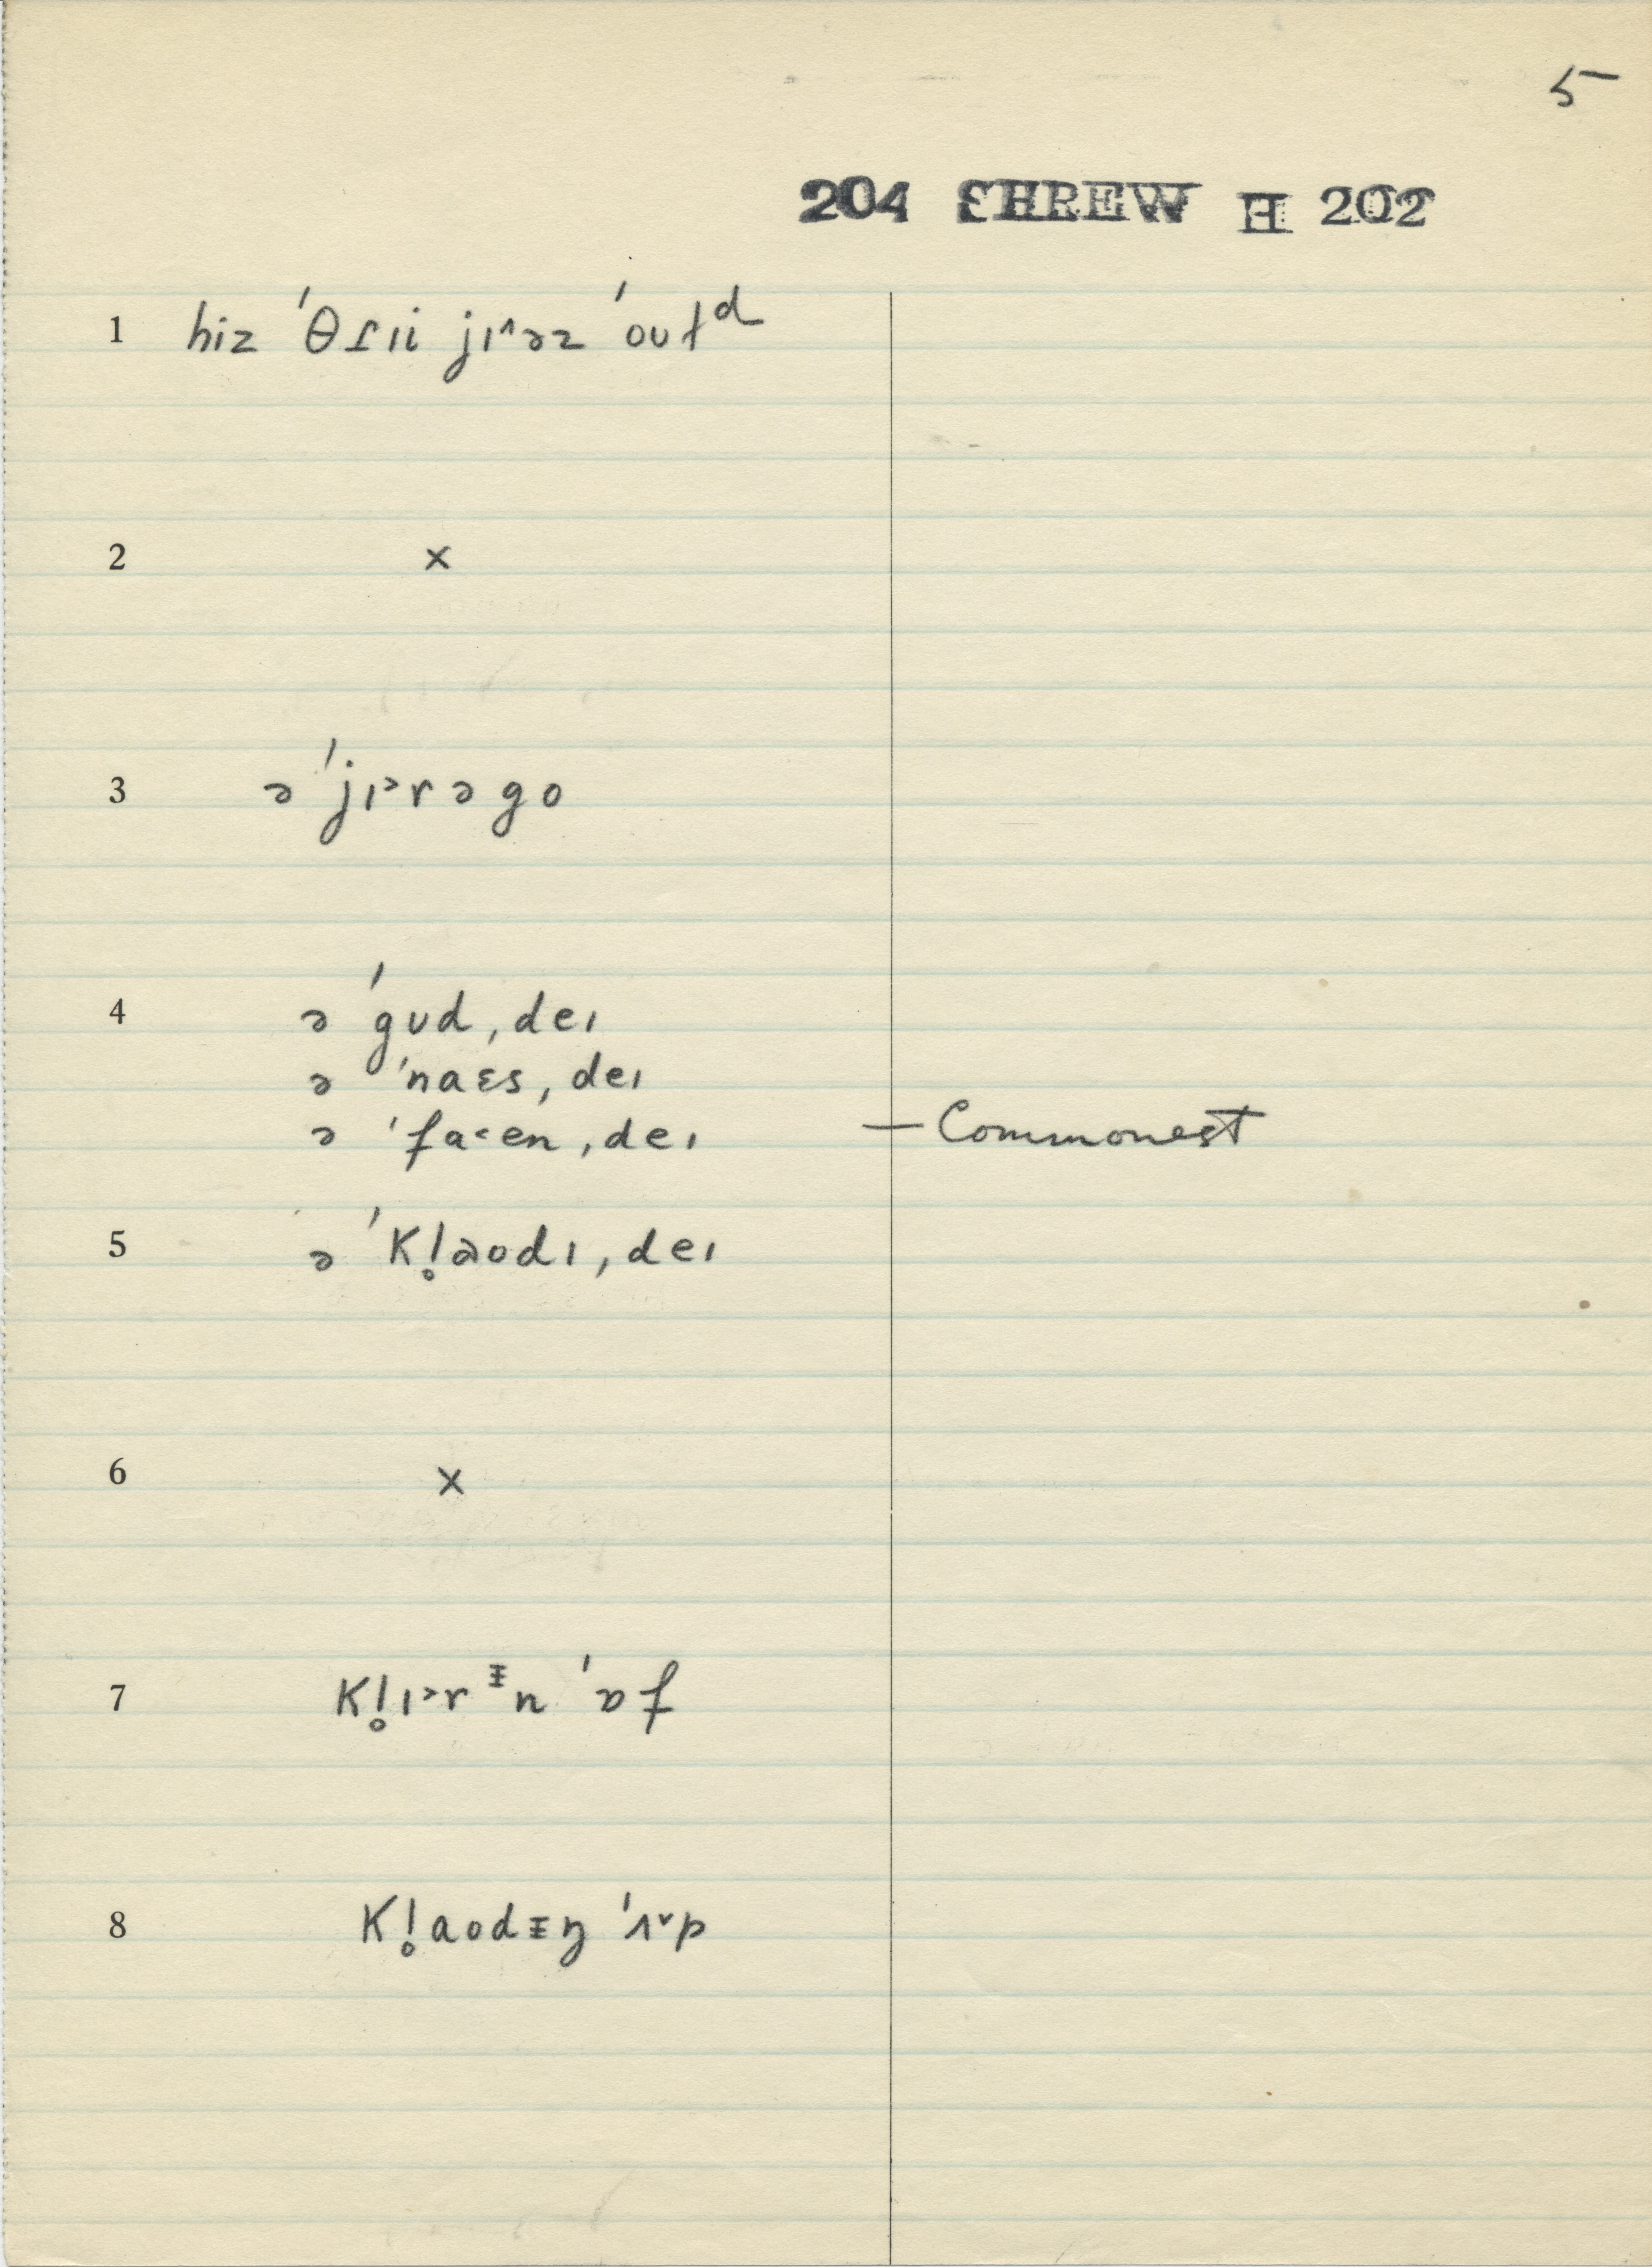 5
204 SHREW H 202
1 hiz 'θɾɪi jɪ^əz 'oʊɫᵈ
2 ×
3 ə 'jɪ˃rəgo
4 ə 'gʊd ˌdeɪ
ə 'naɛs ˌdeɪ
ə 'fa˂en ˌdeɪ — Commonest
5 ə 'kl̥aodɪ ˌdeɪ
6 ×
7 kl̥ɪ˃rᵻn 'ɒf
8 kl̥aodᵻŋ 'ʌ˅p